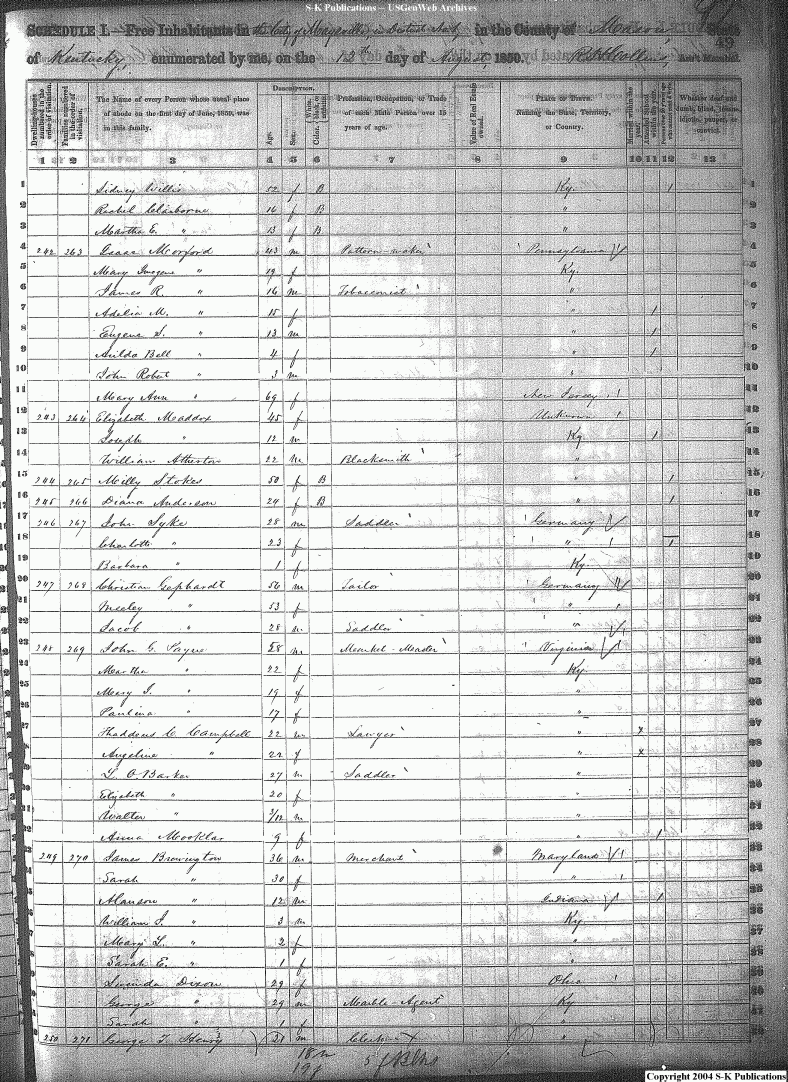 S-K Publications – USGenWeb Archives
49
SCHEDULE I.—Free Inhabitants in the City of Maysville, in District in the County of Mason State
of Kentucky enumerated by me, on the 12th day of August, 1850. Ass't Marshal.
Dwelling-houses numbered in the order of visitation. Families numbered in the order of visitation. The Name of every Person whose usual place of abode on the first day of June, 1850, was in this family. Description. Age. Sex. Color, Profession, Occupation, or Trade of each Male Person over 15 years of age. Value of Real Estate owned. Place of Birth. Naming the State, Territory, or Country. Married within the year. Whether deaf and dumb, blind, insane, idiotic, pauper, or convict.
1 2 3 4 5 6 7 8 9 10 11 12 13
1 Sidney Willis 52 f B Ky. 1 1
2 Rachel Claiborne 16 f B " 2
3 Martha E. " 13 f B " 3
4 242 263 Isaac Morford 43 m Pattern-maker Pennsylvania 4
5 Mary Imogene " 19 f Ky. 5
6 James R. " 16 m Tobacconist " 6
7 Adelia M. " 15 f " 1 7
8 Eugene S. " 13 m " 1 8
9 Bell " 4 f " 1 9
10 John Robert " 3 m " 10
11 Mary Ann " 69 f New Jersey 11
12 243 264 Elizabeth Maddox 45 f Unknown 12
13 Joseph " 12 m Ky 1 13
14 William Atherton 22 m Blacksmith " 14
15 244 265 Milly Stokes 50 f B " 1 15
16 245 266 Diana Anderson 24 f B " 1 16
17 246 267 John Syke 28 m Saddler Germany 17
18 Charlotte " 23 f " 1 18
19 Barbara " 1 f Ky. 19
20 247 268 Christian Gephardt 56 m Tailor Germany 20
21 " 53 f " 21
22 Jacob " 28 m Saddler " 22
23 248 269 John C. Payne 28 m Virginia 23
24 Martha " 22 f Ky. 24
25 Mary J. " 19 f " 25
26 Paulina " 17 f " 26
27 Thaddeus C. Campbell 22 m Lawyer " x 27
28 Angeline " 22 f " x 28
29 Barker 27 m Saddler " 29
30 Elizabeth " 20 f " 30
31 Walter " m " 31
32 Anna Mooklar 9 f " 1 32
33 249 270 James Browington 36 m Merchant Maryland 33
34 Sarah " 30 f " 34
35 Alanson " 12 m Indiana 1 35
36 William J. " 3 m Ky 36
37 Mary L. " 2 f " 37
38 Sarah E. " 1 f " 38
39 Lucinda Dixon 29 f Ohio 39
40 George " 29 m Marble-Agent Ky 40
41 Sarah " 1 f " 41
42 250 271 George T. Henry 31 m Clerk " 42
18 m
19 f
5 f Blks
Copyright 2004 S-K Publications